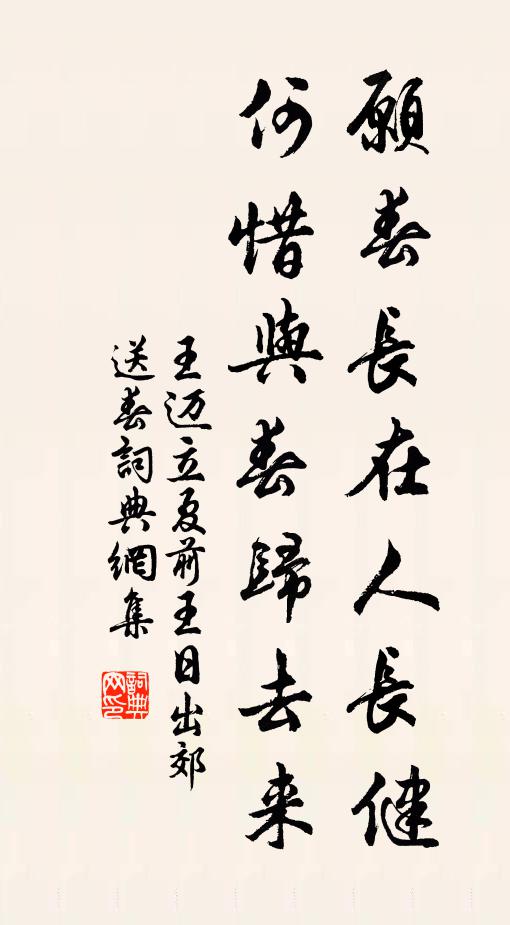 願春長在人長健
何惜與春歸去来
王迈立夏前王日出郊
送春詞典網集
詞典
网印